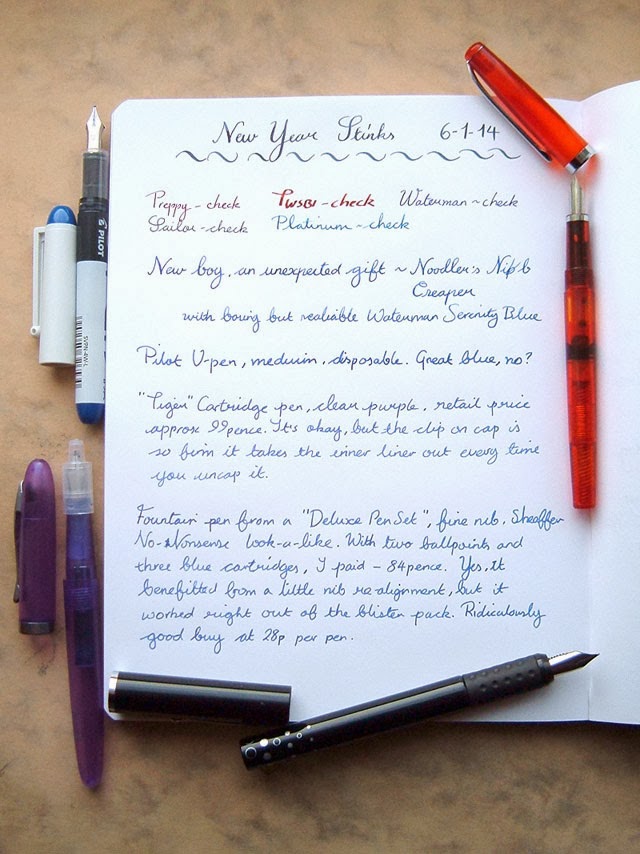 New Year Stinks 6-1-14
Preppy - check TWSBI - check Waterman ~ check
Sailor - check Platinum ~ check
New boy, an unexpected gift ~ Noodler's Nib
Creaper
with boring but realiable Waterman Serenity Blue
Pilot V-pen, medium, disposable. Great blue, no?
"Tiger" Cartridge pen, clear purple, retail price
approx 99pence. It's okay, but the clip on cap is
so firm it takes the inner liner out every time
you uncap it.
Fountain pen from a "Deluxe Pen Set", fine nib, Sheaffer
No-Nonsense look-a-like. With two ballpoints and
three blue cartridges, I paid - 84pence. Yes, it
benefitted from a little nib re-alignment, but it
worked right out of the blister pack. Ridiculously
good buy at 28p per pen.
PILOT
SVPN-4WL